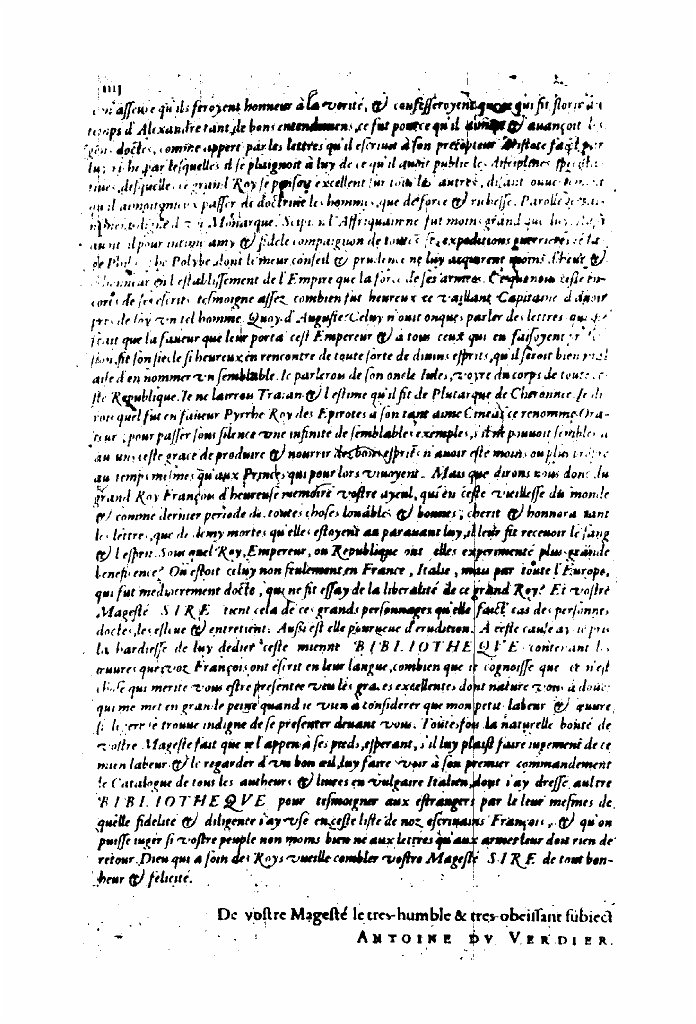 iiij
asseure qu'ils feroyent honneur à la verité, & confesseroyent que ce qui fit florir du
temps d'Alexandre tant de bons entendemens, ce fut pource qu'il aymoit & auançoit les
gens doctes, comme appert par les lettres qu'il escriuit à son precepteur Aristote
par lesquelles il se plaignoit à luy de ce qu'il auoit publié les disciplines
desquelles ce grand Roy se pensoit exceller sur tous les autres, disant
qu'il aymoit mieux passer de doctrine les hommes, que de force & richesse. Parolle
digne d'vn Monarque. Scipion l'Affriquain ne fut moins grand que luy,
auoit il pour intime amy & fidele compaignon de toutes ses expeditions guerrieres
Polybe, dont le meur conseil & prudence ne luy acquirent moins d'heur &
en l'establissement de l'Empire que la force de ses armes. Ce que nous reste en-
cores de ses escrits tesmoigne assez combien fut heureux ce vaillant Capitaine d'auoir
pres de soy vn tel homme. Quoy d'Auguste? Celuy n'ouit onques parler des lettres qui ne
sçait que la faueur que leur porta cest Empereur & à tous ceux qui en faisoyent
sion, fit son siecle si heureux en rencontre de toute sorte de diuins esprits, qu'il seroit bien mal
aisé d'en nommer vn semblable. Ie parleroy de son oncle Iules, voyre du corps de toute ce-
ste Republique. Ie ne lairrou Traian & l'estime qu'il fit de Plutarque de Cheronnee. Ie di-
rois quel fut en faueur Pyrrhe Roy des Epirotes à son tant aimé Cineas ce renommé Ora-
teur, pour passer sous silence vne infinité de semblables exemples, s'il ne pouuoit sembler à
aucuns ceste grace de produire & nourrir des bons esprits n'auoir esté moins ou plus
au temps mesmes qu'aux Princes qui pour lors viuoyent. Mais que dirons nous donc du
grand Roy François d'heureuse memoire vostre ayeul, qui en ceste vieillesse du monde
& comme dernier periode de toutes choses louables & bonnes, cherit & honnora tant
les lettres, que de demy mortes qu'elles estoyent au parauant luy, il leur fit receuoir le sang
& l'esprit. Sous quel Roy, Empereur, ou Republique ont elles experimenté plus grande
beneficence? Ou estoit celuy non seulement en France, Italie, mais par toute l'Europe,
qui fut mediocrement docte, qui ne fit essay de la liberalité de ce grand Roy? Et vostre
Magesté SIRE tient cela de ces grands personnages qu'elle faict cas des personnes
doctes, les esleue & entretient: Aussi est elle pourueue d'erudition. A ceste cause ay ie pris
la hardiesse de luy dedier ceste mienne BIBLIOTHEQVE contenant les
œuures que voz François ont escrit en leur langue, combien que ie cognoisse que ce n'est
chose qui merite vous estre presentee veu les graces excellentes dont nature vous à doué:
qui me met en grande peine quand ie vien à considerer que mon petit labeur & œuure,
si leger se trouue indigne de se presenter deuant vous. Toutesfois la naturelle bonté de
vostre Magesté fait que ie l'appen à ses pieds, esperant, s'il luy plaist faire iugement de ce
mien labeur & le regarder d'vn bon œil, luy faire voir à son premier commandement
le Catalogue de tous les autheurs & liures en vulgaire Italien, dont i'ay dressé aultre
BIBLIOTHEQVE pour tesmoigner aux estrangers par le leur mesmes de
quelle fidelité & diligence i'ay vsé en ceste liste de noz escriuains François, & qu'on
puisse iuger si vostre peuple non moins bien né aux lettres qu'aux armes leur doit rien de
retour. Dieu qui a soin des Roys vueille combler vostre Magesté SIRE de tout bon-
heur & felicité.
De vostre Magesté le tres-humble & tres-obeissant subiect
ANTOINE DV VERDIER.